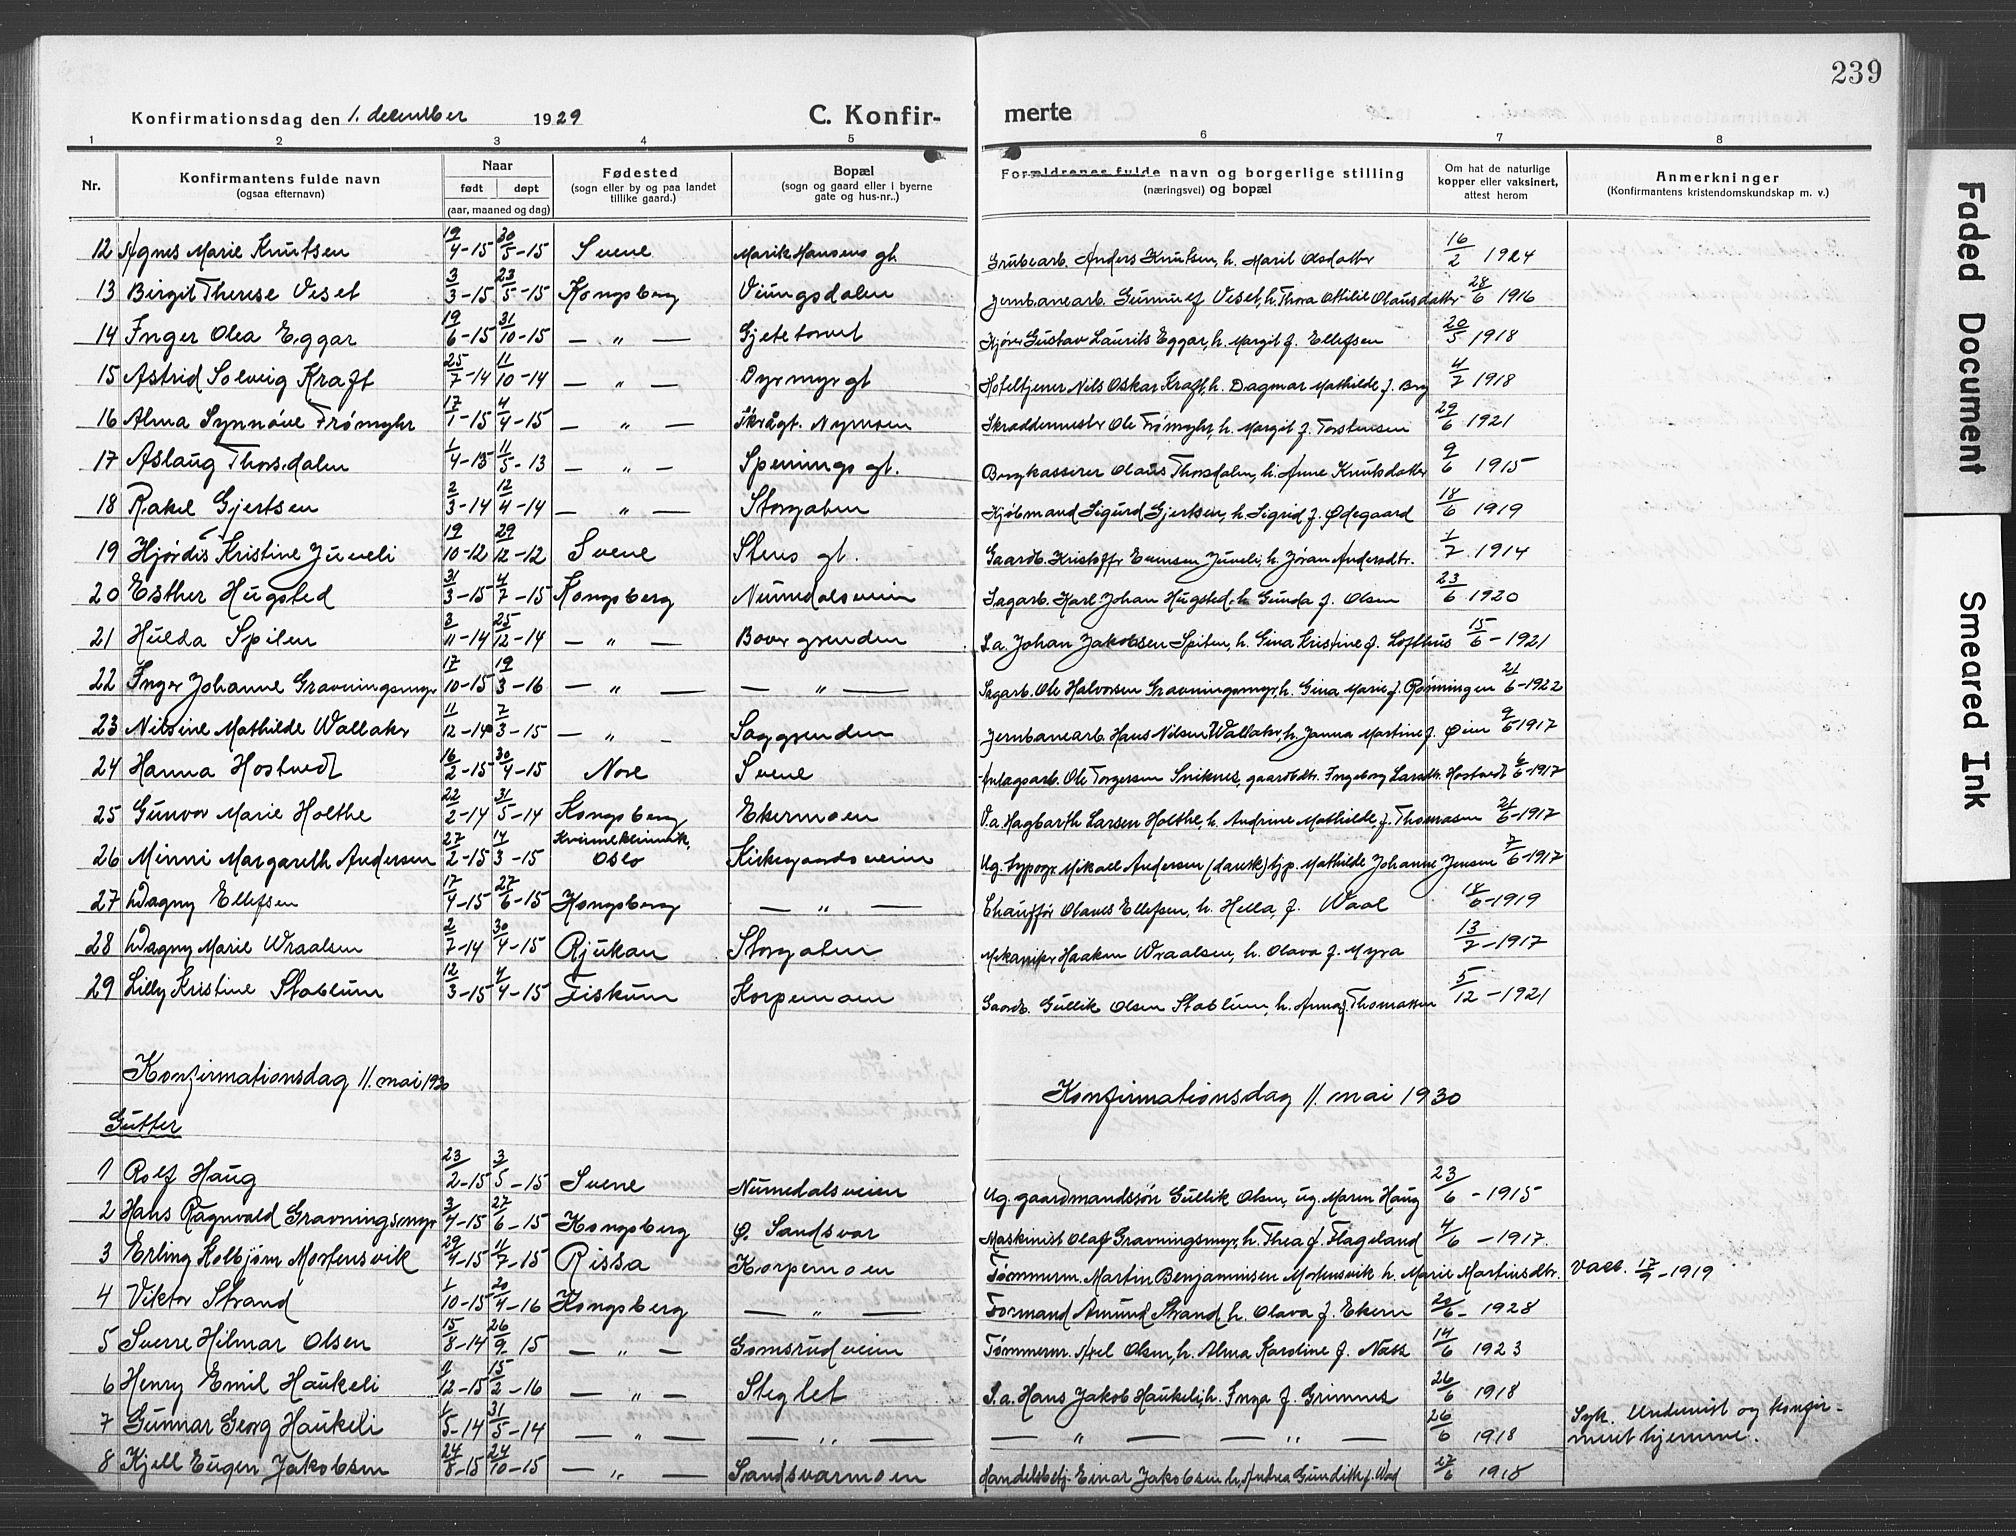 239
Konfirmationsdag den 1. december 1929 C. Konfir- merte
1 2 3 4 5 6 7 8
Nr. Konfirmantens fulde navn (ogsaa efternavn) Naar født døpt (aar, maaned og dag) Fødested (sogn eller by og paa landet tillike gaard.) Bopæl (sogn og gaard eller i byerne gate og hus-nr..) Forældrenes fulde navn og borgerlige stilling (næringsvei) og bopæl Om hat de naturlige kopper eller vaksinert, attest herom Anmerkninger (Konfirmantens kristendomskundskap m. v.)
12 Agnes Marie Knutsen 19/4-15 30/5-15 Svene Marik Hansens gt. Grubearb. Anders Knutsen, h. Marit Olsdatter 16/2 1924
13 Birgit Therese Veset 3/3-15 23/5-15 Kongsberg Viungsdalen Jernbanearb. Gunnulf Veset, h. Thora Ottilie Olausdatter 28/6 1916
14 Inger Olea Eggar 19/6-15 31/10-15 — " — Gjetetorvet Kjører Gustav Laurits Eggar, h. Margit f. Ellefsen 20/5 1918
15 Astrid Solveig Kraft 25/7-14 11/10-14 — " — Dyrmyrgt Hoteltjener Nils Oskar Kraft, h. Dagmar Mathilde f. Berg 4/7 1918
16 Alma Synnøve Trømyhr 17/1-15 4/4-15 — " — Skrågt. Nymoen Skreddermester Ole Trømyhr, h. Margit f. Torstensen 29/6 1921
17 Aslaug Thorsdalen 1/4-13 11/5-13 — " — Spennings gt. Bergkasserer Olaus Thorsdalen, h. Anne Knutsdatter 9/6 1915
18 Rakel Gjertsen 2/3-14 12/4-14 — " — Storgaten Kjøbmand Sigurd Gjertsen, h. Sigrid f. Ødegaard 18/6 1919
19 Hjørdis Kristine Juveli 19/10-12 29/12-12 Svene Stens gt. Gaardb. Kristoffer Evensen Juveli, h. Jøran Andersdtr. 1/7 1914
20 Esther Hugsted 31/3-15 4/7-15 Kongsberg Numedalsveien Sagarb. Karl Johan Hugsted, h. Gunda f. Olsen 23/6 1920
21 Hulda Spiten 3/11-14 25/12-14 — " — Bævergrenden S.a. Johan Jakobsen Spiten, h. Gina Kristine f. Lofthus 15/6-1921
22 Inger Johanne Gravningsmyr 17/10-15 19/3-16 — " — — " — Sagarb. Ole Halvorsen Gravningsmyr, h. Gina Marie f. Rønningen 21/6-1922
23 Nilsine Mathilde Wallaker 11/12-14 7/3-15 — " — Saggrenden Jernbanearb. Hans Nilsen Wallaker, h. Janna Martine f. Øien 9/6 1917
24 Hanna Hostvedt 16/2-15 30/4-15 Nore Svene Anlagsarb. Ole Torgersen Sniknes, gaardbdtr. Ingeborg Larsdtr. Hostvedt 6/6-1917
25 Gunvor Marie Holthe 22/2-14 31/5-14 Kongsberg Ekermoen V.a. Hagbarth Larsen Holthe, h. Andrine Mathilde, f. Thomasen 21/6-1917
26 Minni Margareth Andersen 27/2-15 14/3-15 Kvinneklinnik, Oslo Kirkegaardsveien Ug. typogr Mikael Andersen (dansk) tjp. Mathilde Johanne Jensen 7/6-1917
27 Dagny Ellefsen 17/4-15 27/6-15 Kongsberg — " — Chauffør Olaves Ellefsen, h. Hella, f. Waal 18/6-1919
28 Dagny Marie Wraalsen 2/7-14 30/4-15 Rjukan Storgaten Mekaniker Haaken Wraalsen, h. Olava f. Myra 13/7-1917
29 Lilly Kristine Stablum 12/3-15 4/4-15 Fiskum Korpemoen Gaardb. Gullik Olsen Stablum, h. Anna f. Thomassen 5/12-1921
Konfirmationsdag 11. mai 1930 Konfirmationsdag 11. mai 1930
Gutter
1 Rolf Haug 23/2-15 3/5-15 Svene Numedalsveien Ug. gaardmandssøn Gullik Olsen, ug. Maren Haug 23/6-1915
2 Hans Ragnvald Gravningsmyr 3/4-15 27/6-15 Kongsberg Ø. Sandsvær Maskinist Olaf Gravningsmyr, h. Thea f. Flageland 4/6-1917.
3 Erling Kolbjørn Mortensvik 29/4-15 11/7-15 Rissa Korpemoen Tømmerm. Martin Benjaminsen Mortensvik h. Marie Martinsdtr. Vacc. 17/9-1919
4 Viktor Strand 1/10-15 20/4-16 Kongsberg — " — Formand Amund Strand, h. Olava f. Ekern 20/6-1928
5 Sverre Hilmar Olsen 15/8-14 26/9 15 — " — Gomsrudveien Tømmerm. Axel Olsen, h. Alma Karoline f. Næss 14/6 1923
6 Henry Emil Haukeli 9/12-15 15/2-16 — " — Steglet S.a. Hans Jakob Haukeli, h. Inga f. Grimnes 26/6 1918
7 Gunnar Georg Haukeli 1/5-14 31/5-14 — " — — " — — " — — " — 26/6 1918 Syk. Undervist og konfir-
meret hjemme.
8 Kjell Eugen Jakobsen 24/8-15 24/10-15 — " — Sandsværmoen Handelsbetj. Einar Jakobsen h, Andrea Gundith f. Wad 27/6 1918
Faded Document
Smeared Ink